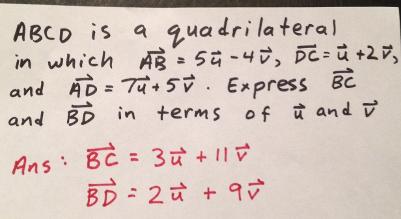 ABCD is a quadrilateral
in which A͞B⃗ = 5u⃗ - 4v⃗, DC⃗ = u⃗ + 2v⃗,
and AD⃗ = 7u⃗ + 5v⃗. Express BC⃗
and BD⃗ in terms of u⃗ and v⃗
Ans: BC⃗ = 3u⃗ + 11v⃗
BD⃗ = 2u⃗ + 9v⃗